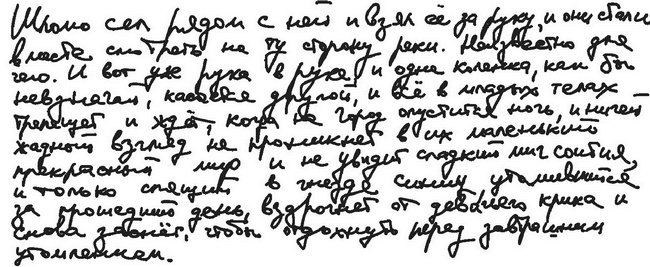 Шломо сел рядом с ней и взял её за руку, и они стали
вместе смотреть на ту сторону реки. Неизвестно для
чего. И вот уж рука в руке, и одна коленка, как бы
невзначай, касается другой, и всё в младых телах
трепещет и ждёт, когда на город опустится ночь, и ничей
жадный взгляд не проникнет в их маленький
прекрасный мир и не увидит сладкий миг соития,
и только спящий в гнезде синиц утомившийся
за прошедший день, вздрогнет от девичьего крика и
снова заснёт, чтобы отдохнуть перед завтрашним
утомленьем.